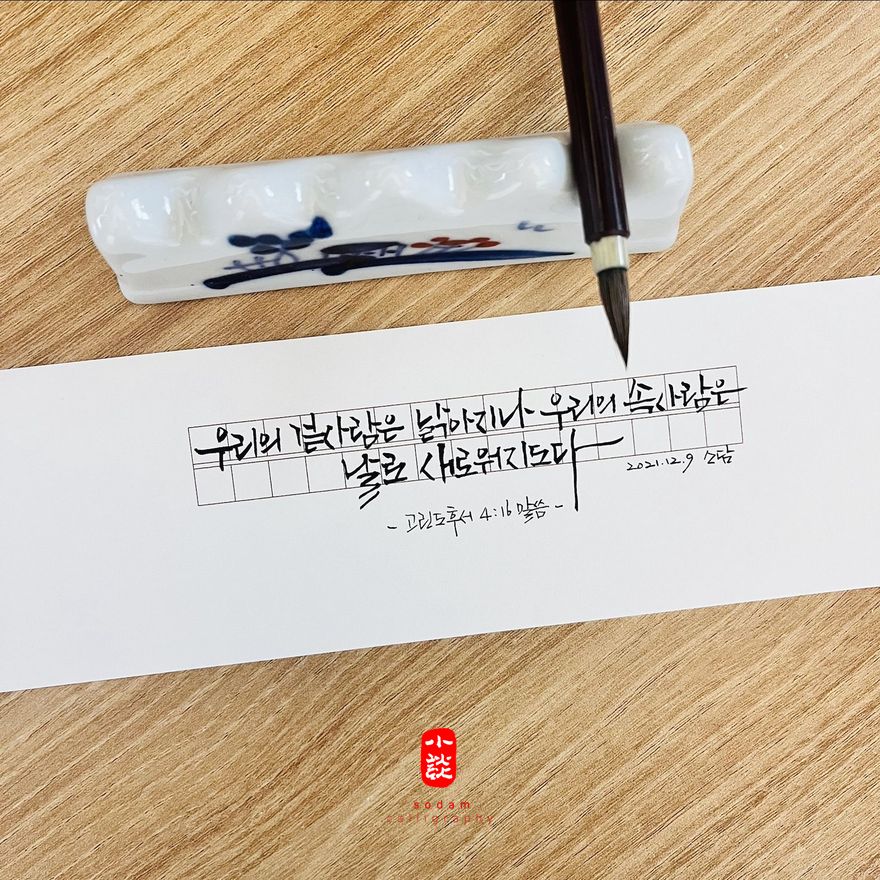 우리의 겉사람은 낡아지나 우리의 속사람은
날로 새로워지도다
2021.12.9 소담
- 고린도후서 4:16 말씀 -
小談
sodam
calligraphy